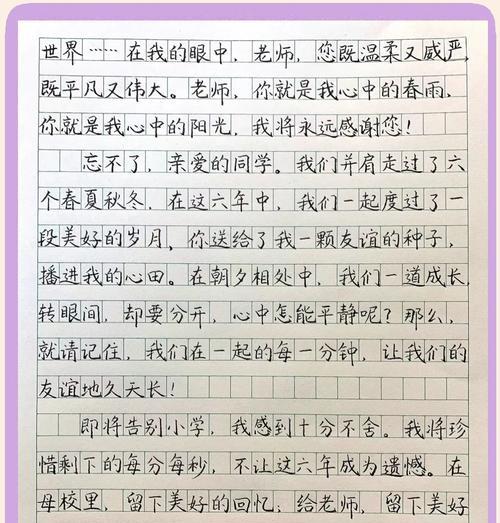 世界……在我的眼中，老师，您既温柔又威严，
既平凡又伟大。老师，你就是我心中的春雨，
你就是我心中的阳光，我将永远感谢您！
忘不了，亲爱的同学。我们并肩走过了六
个春夏秋冬，在这六年中，我们一起度过了一
段美好的岁月，你送给了我一颗友谊的种子，
播进我的心田。在朝夕相处中，我们一道成长，
转眼间，却要分开，心中怎能平静呢？那么，
就请记住，我们在一起的每一分钟，让我们的
友谊地久天长！
即将告别小学，我感到十分不舍。我将珍
惜剩下的每分每秒，不让这六年成为遗憾。在
母校里，留下美好的回忆；给老师，留下美好